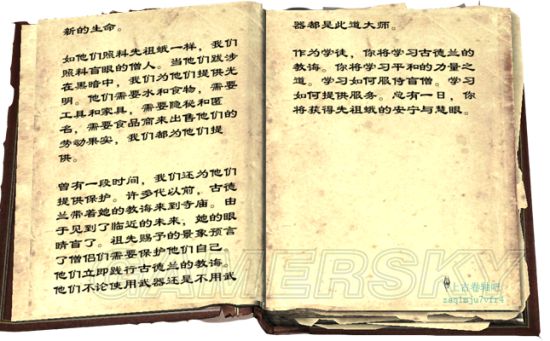 新的生命。
如他们照料先祖蛾一样，我们
照料盲眼的僧人。当他们跋涉
在黑暗中，我们为他们提供光
明。他们需要水和食物，需要
工具和家具，需要隐秘和匿
名，需要食品商来出售他们的
劳动果实，我们都为他们提
供。
曾有一段时间，我们还为他们
提供保护。许多代以前，古德
兰带着她的教诲来到寺庙。由
于见到了临近的未来，她的眼
睛盲了。祖先赐予的景象预言
了僧侣们需要保护他们自己。
他们立即践行古德兰的教诲。
他们不论使用武器还是不用武
器都是此道大师。
作为学徒，你将学习古德兰的
教诲。你将学习平和的力量之
道。学习如何服侍盲僧。学习
如何提供服务。总有一日，你
将获得先祖蛾的安宁与慧眼。
GAMERSKY
上古卷轴吧
zaq1mju7vfr4